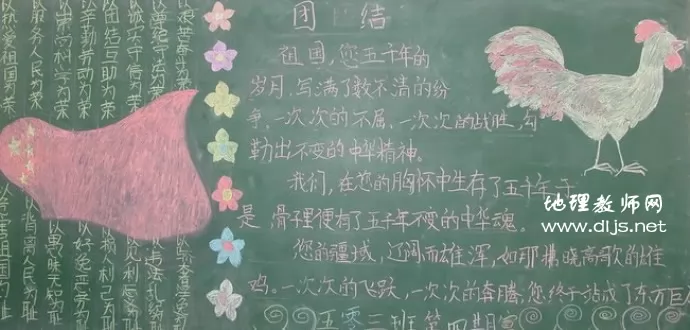 团 结
祖国，您五千年的
岁月，写满了数不清的纷
争，一次次的不屈、一次次的战胜，勾
勒出不变的中华精神。
我们，在您的胸怀中生存了五千年，于
是，骨子里便有了五千年不变的中华魂。
您的疆域，辽阔而雄浑，如那携晓高歌的雄
鸡。一次次的飞跃，一次次的奔腾，您终于站成了东方巨
五零三班第四期
以热爱祖国为荣
以服务人民为荣
以崇尚科学为荣
以辛勤劳动为荣
以团结互助为荣
以诚实守信为荣
以遵纪守法为荣
以艰苦奋斗为荣
以背离人民为耻
以愚昧无知为耻
以好逸恶劳为耻
以损人利己为耻
地理教师网
www.dljs.net